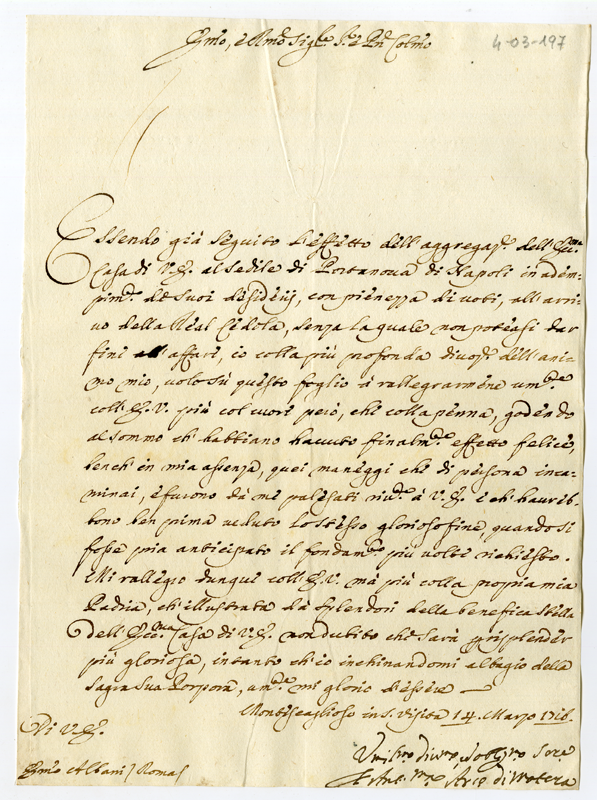 4-03-197
Em̃o, e Rmõ Sig.re S.re e Pñ Colmõ
Essendo già seguito l'effetto dell'aggregaz.e dell'Ecc.ma
Casa di V. E. al Sedile di Portanova di Napoli in adem-
pim.to de suoi desiderij, con pienezza di voti, all'arri-
vo della Real Cedola, senza la quale non poteasi dar
fini all'affari, io colla più profonda divoz.e dell'ani-
mo mio, volo sù questo foglio à rallegrarmene um.te
coll'E. V. più col cuore però, che colla penna, godendo
al sommo ch'habbiano havuto finalm.te effetto felice,
bench'in mia assenza, quei maneggi che di persona inca-
minai, e furono dà me palesati riv.te à V. E. e ch'havreb-
bono ben prima veduto lo stesso glorioso fine, quando si
fosse pria anticipato il fondam.to più volte richiesto.
Mi rallegro dunque coll'E. V. mà più colla propria mia
Patria, ch'illustrata dà splendori della benefica stella
dell'Ecc.ma Casa di V. E. non dubito che sarà p risplender
più gloriosa, intanto ch'io inchinandomi al bagio della
Sagra Sua Porpora, um.te mi glorio d'essere
Montescaglioso in S. Visita 14. Marzo 1716.
Di V. E.
Em̃o Albani / Roma /
Um̃ss.mo div.mo obblig.mo Ser.e
Ant. M.a Arc. di Matera